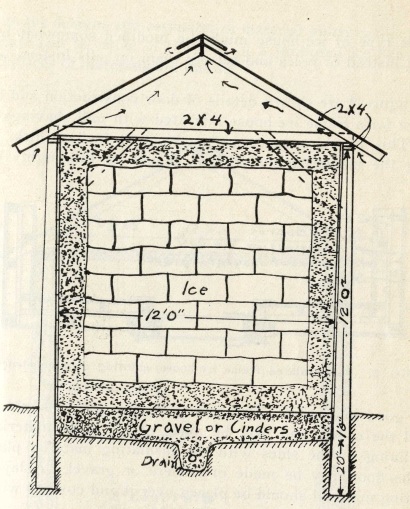 2X4
2X4
Ice
12'0"
12'0"
Gravel or Cinders
Drain